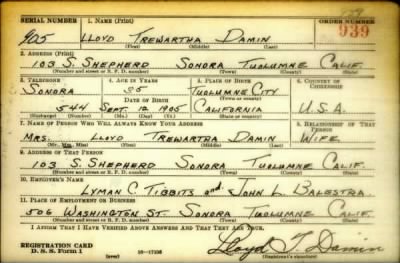 SERIAL NUMBER 1. NAME (Print) ORDER NUMBER
905 LLOYD TREWARTHA DAMIN 939
(First) (Middle) (Last)
2. ADDRESS (Print)
103 S. SHEPHERD SONORA TUOLUMNE CALIF.
(Number and street or R. F. D. number) (Town) (County) (State)
3. TELEPHONE 4. AGE IN YEARS 5. PLACE OF BIRTH 6. COUNTRY OF CITIZENSHIP
SONORA 35 TUOLUMNE CITY
DATE OF BIRTH (Town or county)
544 SEPT. 12 1905 CALIFORNIA U.S.A.
(Exchange) (Number) (Mo.) (Day) (Yr.) (State or country)
7. NAME OF PERSON WHO WILL ALWAYS KNOW YOUR ADDRESS 8. RELATIONSHIP OF THAT PERSON
MRS. LLOYD TREWARTHA DAMIN WIFE
(Mr., Mrs., Miss) (First) (Middle) (Last)
9. ADDRESS OF THAT PERSON
103 S. SHEPHERD SONORA TUOLUMNE CALIF.
(Number and street or R. F. D. number) (Town) (County) (State)
10. EMPLOYER'S NAME
LYMAN C. TIBBITS and JOHN L. BALESTRA
11. PLACE OF EMPLOYMENT OR BUSINESS
506 WASHINGTON ST. SONORA TUOLUMNE CALIF.
(Number and street or R. F. D. number) (Town) (County) (State)
I AFFIRM THAT I HAVE VERIFIED ABOVE ANSWERS AND THAT THEY ARE TRUE.
REGISTRATION CARD
D. S. S. Form 1 (over) Lloyd T. Damin
(Registrant's signature)